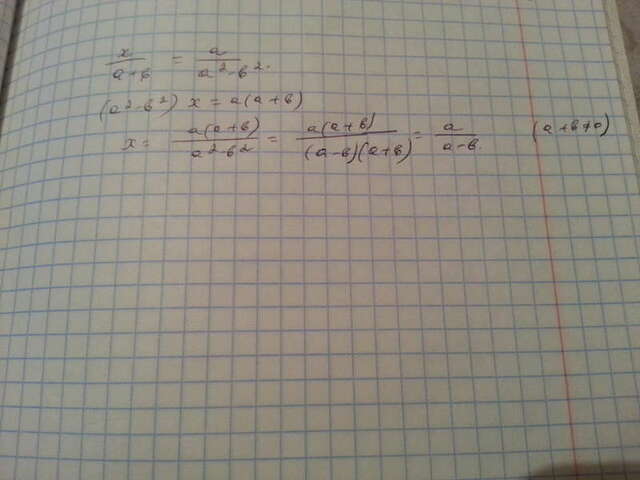 x/(a+b) = a/(a²-b²).
(a²-b²) x = a(a+b)
x = a(a+b)/(a²-b²) = a(a+b)/((a-b)(a+b)) = a/(a-b). (a+b≠0)